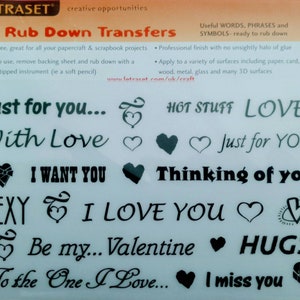 ETRASET creative opportunities
Rub Down Transfers
Useful WORDS, PHRASES and SYMBOLS - ready to rub down
great for all your papercraft & scrapbook projects
• Professional finish with no unsightly halo of glue
use, remove backing sheet and rub down with a
tipped instrument (ie a soft pencil)
• Apply to a variety of surfaces including paper, card, wood, metal, glass and many 3D surfaces
www.letraset.com/uk/craft
ust for you... HOT STUFF LOVE
With Love Just for YO
I WANT YOU Thinking of yo
EXY I LOVE YOU
Be my...Valentine HUG
To the One I Love... I miss you